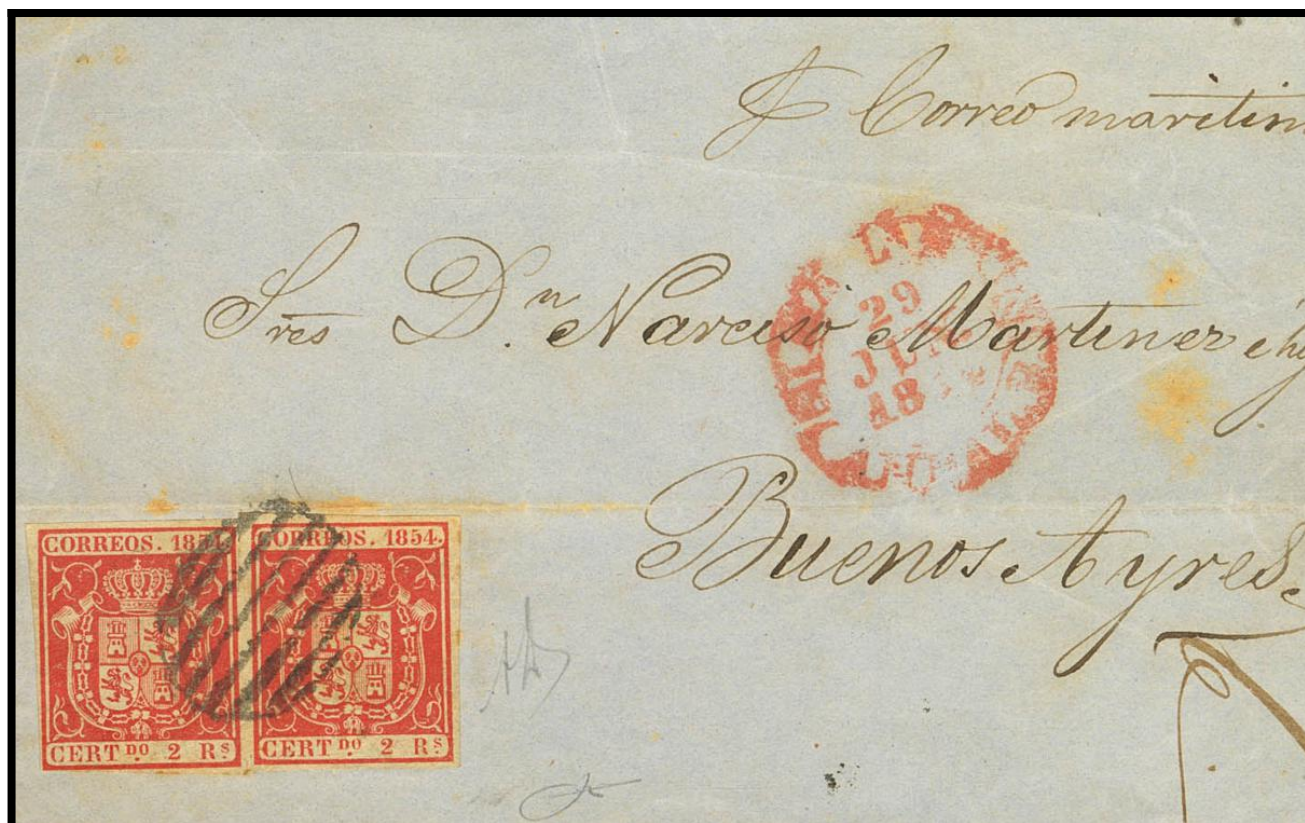 Correo maritim
Sres Dn. Narciso Martinez é hij
29
JL
18
Buenos Ayres
CORREOS. 185 CORREOS. 1854.
CERTDO. 2 RS CERTDO. 2 RS